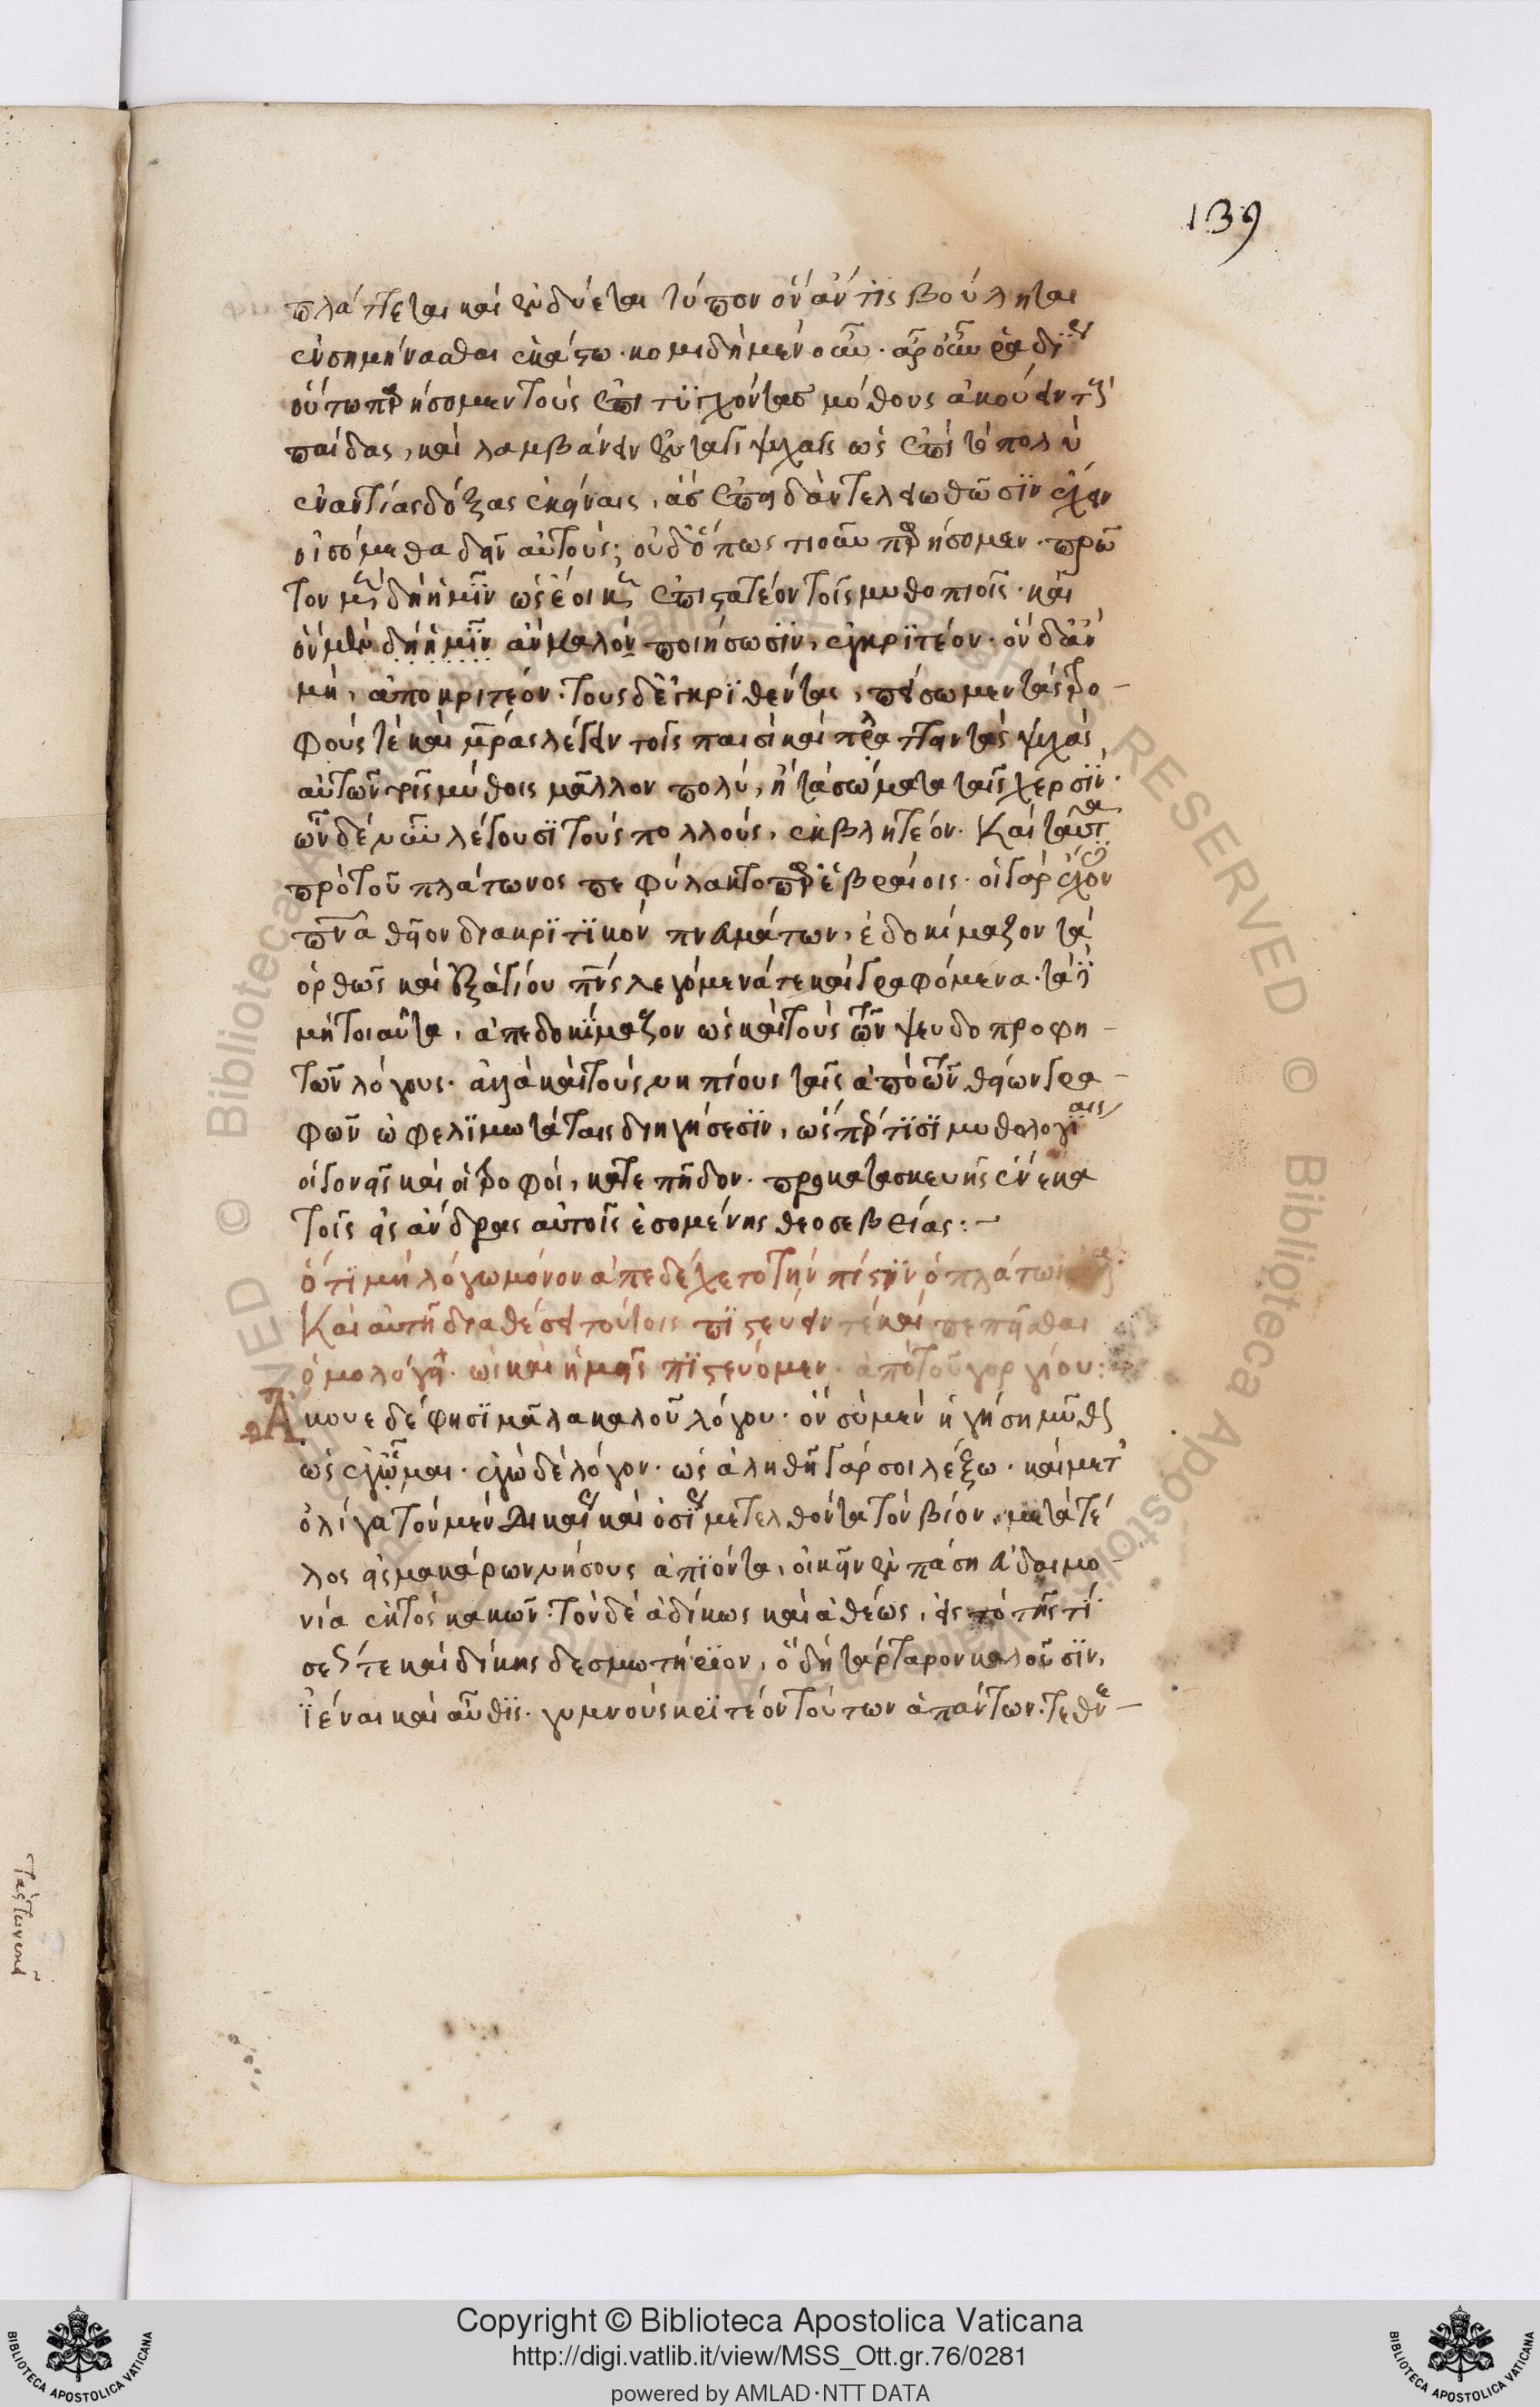 139
πλάττεται καὶ ἐνδύεται τύπον ὃν ἄν τις βούληται
ἐνσημήνασθαι ἑκάστω· κομιδῆ μὲν οὖν· ἆρ οὖν ραδίως
οὕτω παρήσομεν τοὺς ἐπιτυχόντας μύθους ἀκούειν τοὺς
παῖδας, καὶ λαμβάνειν ἐν ταῖς ψυχαῖς ὡς ἐπὶ τὸ πολὺ
ἐναντίας δόξας ἐκείναις, ἃς ἐπειδὰν τελειωθῶσϊν ἔχειν
οἰσόμεθα δεῖν αὐτούς; οὐδ ὅπως τιοῦν παρήσομεν· πρῶ
τον μὲν δὴ ἡμῖν ὡς ἔοικεν ἐπιστατέον τοῖς μυθοποιοῖς· καὶ
ὃν μὲν δὴ ἡμῖν ἂν καλὸν ποιήσωσϊν, ἐγκρϊτέον· ὃν δ ἂν
μὴ, ἀποκριτέον· τοὺς δὲ ἐγκρϊθέντας, πείσωμεν τὰς τρο-
φούς τε καὶ μητέρας λέγειν τοῖς παισὶ καὶ πλάττειν τὰς ψυχὰς
αὐτῶν τοῖς μύθοις μᾶλλον πολὺ, ἢ τὰ σώματα ταῖς χερσϊν·
ὧν δὲ νῦν λέγουσϊ τοὺς πολλοὺς, ἐκβλητέον. Καὶ ταῦτα
πρὸ τοῦ πλάτωνος πεφύλακτο παρ ἑβραίοις· οἱ γὰρ ἔχοντες
πνα θεῖον διακρϊτϊκὸν πνευμάτων, ἐδοκίμαζον τὰ
ὀρθῶς καὶ ἐξ ἁγίου πνς λεγόμενά τε καὶ γραφόμενα· τὰ δὲ
μὴ τοιαῦτα, ἀπεδοκίμαζον ὡς καὶ τοὺς τῶν ψευδοπροφη-
τῶν λόγους· ἀλλὰ καὶ τοὺς νηπίους ταῖς ἀπὸ τῶν θείων γρα-
φῶν ὠφελϊμωτάταις διηγήσεσϊν, ὡς παρά τϊσϊ μυθολογίαις
οἱ γονεῖς καὶ οἱ τροφοὶ, κατεπῆδον· προκατασκευῆς ἕνεκα
τοῖς εἰς ἄνδρας αὐτοῖς ἐσομένης θεοσεβείας:-
ὅτϊ μὴ λόγω μόνον ἀπεδέχετο τὴν πίστϊν ὁ πλάτων
Καὶ αὐτῆ διαθέσει τούτοις πϊστεύειν τε καὶ πεπεῖσθαι
ὁμολογεῖ· οἷς καὶ ἡμεῖς πϊστεύομεν· ἀπὸ τοῦ γοργίου:
Ἄκουε δέ φησϊ μάλα καλοῦ λόγου· ὃν σὺ μὲν ἡγήση μῦθον
ὡς ἐγῶμαι· ἐγὼ δὲ λόγον· ὡς ἀληθῆ γάρ σοι λέξω· καὶ μετ'
ὀλίγα τὸν μὲν δικαίως καὶ ὁσίως μετελθόντα τὸν βίον, μετὰ τέ
λος εἰς μακάρων νήσους ἀπϊόντα, οἰκεῖν ἐν πάση εὐδαιμο-
νία ἐκτὸς κακῶν· τὸν δὲ ἀδίκως καὶ ἀθέως, εἰς τὸ τῆς τί
σεώς τε καὶ δίκης δεσμωτήρϊον, ὃ δὴ τάρταρον καλοῦσϊν,
ϊέναι καὶ αὖθϊς· γυμνοὺς κρϊτέον τούτων ἁπάντων· τεθνε-
Copyright © Biblioteca Apostolica Vaticana
http://digi.vatlib.it/view/MSS_Ott.gr.76/0281
powered by AMLAD·NTT DATA